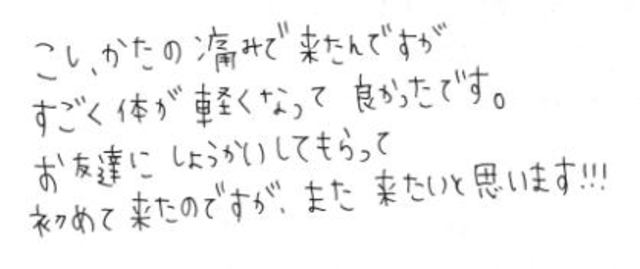 こし、かたの痛みで来たんですが
すごく体が軽くなって良かったです。
お友達にしょうかいしてもらって
初めて来たのですが、また来たいと思います!!!